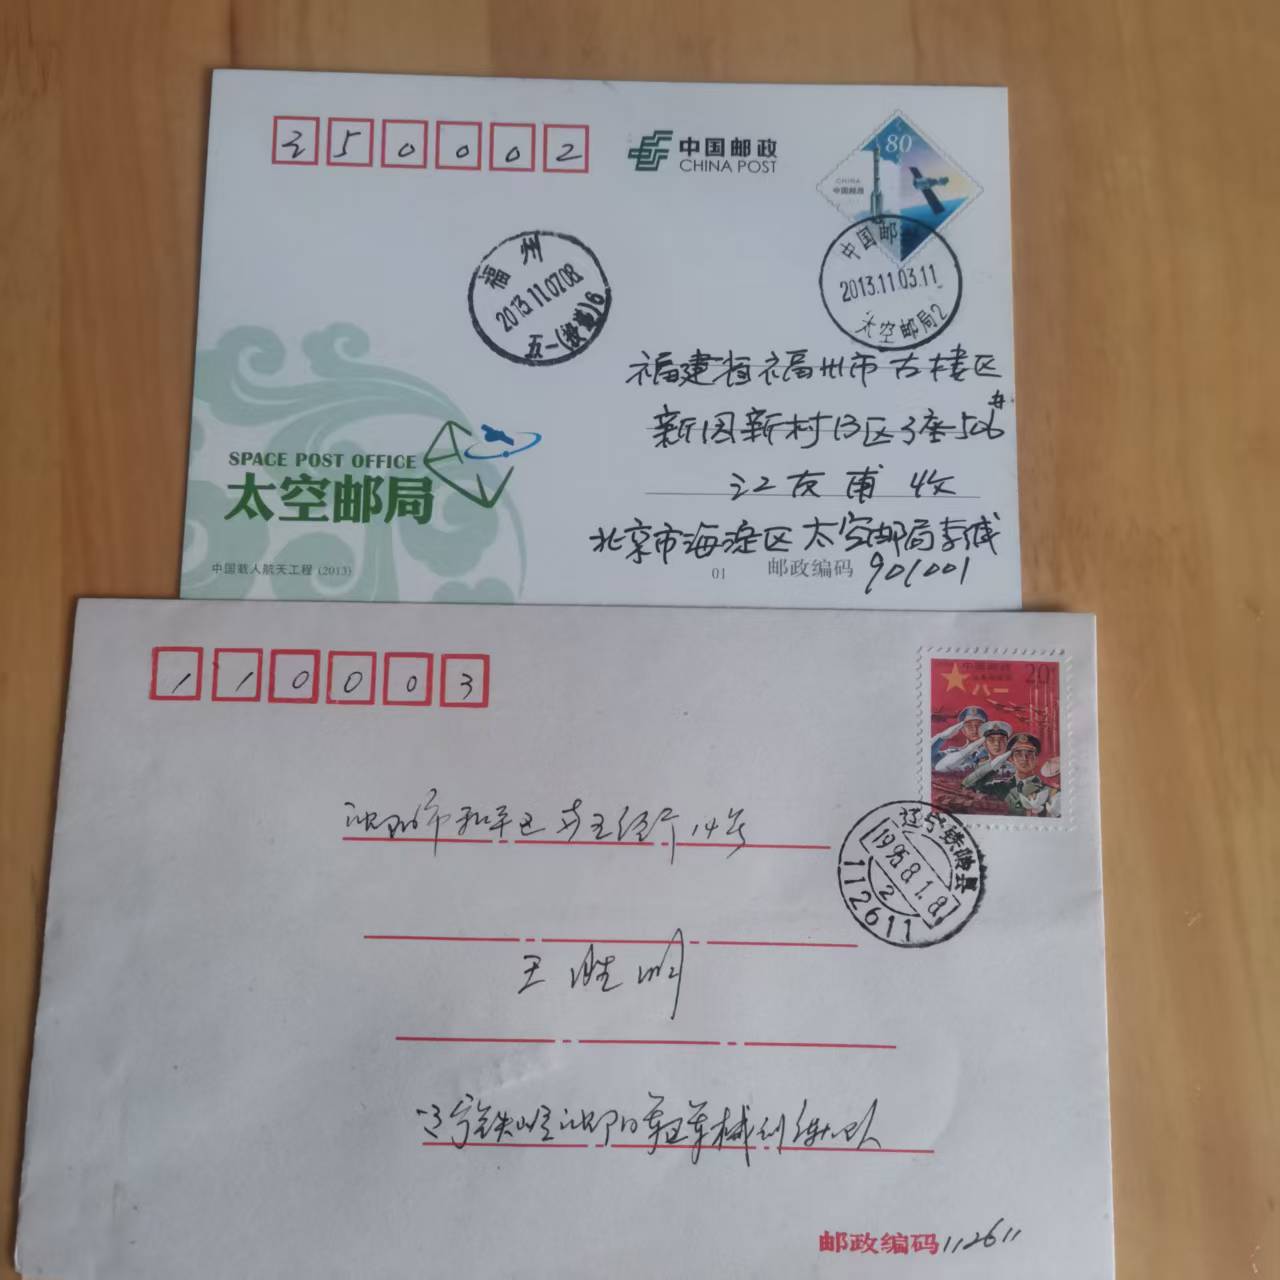 350002
中国邮政
CHINA POST
80
CHINA
中国邮政
福州
2013.11.07.08
五一(投递)6
中国邮政
2013.11.03.11
太空邮局2
福建省福州市古楼区
新国新村13区3座506#
江友甫 收
北京市海淀区太空邮局李斌
SPACE POST OFFICE
太空邮局
中国载人航天工程 (2013)
01
邮政编码 901001
110003
中国邮政
20
八一
沈阳市和平区南五经街14号
辽宁铁岭县
1995.8.1.8
2
112611
王胜明
辽宁铁岭沈阳军区军械训练大队
邮政编码112611